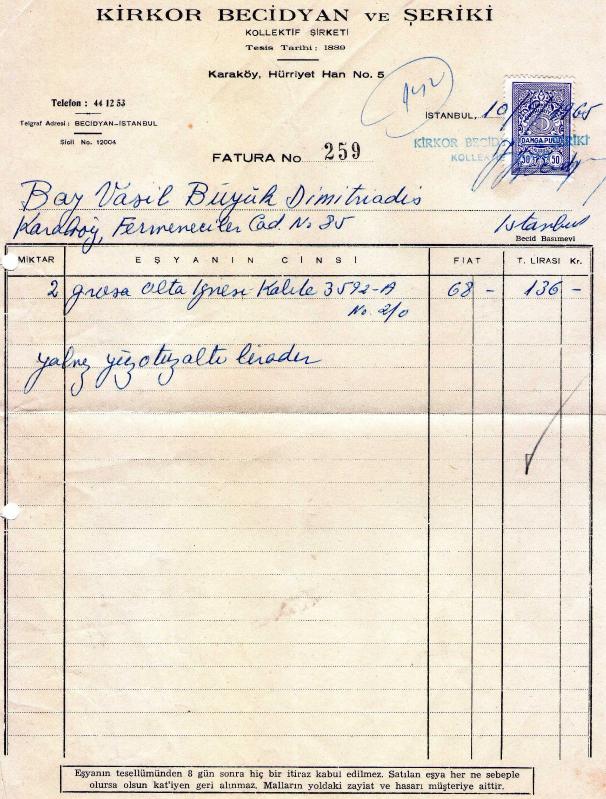 KİRKOR BECİDYAN VE ŞERİKİ
KOLLEKTİF ŞİRKETİ
Tesis Tarihi: 1889
Karaköy, Hürriyet Han No. 5
Telefon: 44 12 53
Telgraf Adresi: BECİDYAN-İSTANBUL
Sicil No. 12004
İSTANBUL, 10/ 1965
KİRKOR BECİDYAN ŞERİKİ
DAMGA PULU
50 50
FATURA No 259
Bay Vasil Büyük Dimitriadis
Karaköy, Fermeneciler Cad. No 85 Istanbul
Becid Basımevi
MİKTAR EŞYANIN CİNSİ FİAT T. LİRASI Kr.
2 grosa olta Iğnesi Kalite 3592-A 68 - 136 -
No. 2/0
yalnız yüzotuzaltı liradır
Eşyanın tesellümünden 8 gün sonra hiç bir itiraz kabul edilmez. Satılan eşya her ne sebeple
olursa olsun kat'iyen geri alınmaz. Malların yoldaki zayiat ve hasarı müşteriye aittir.